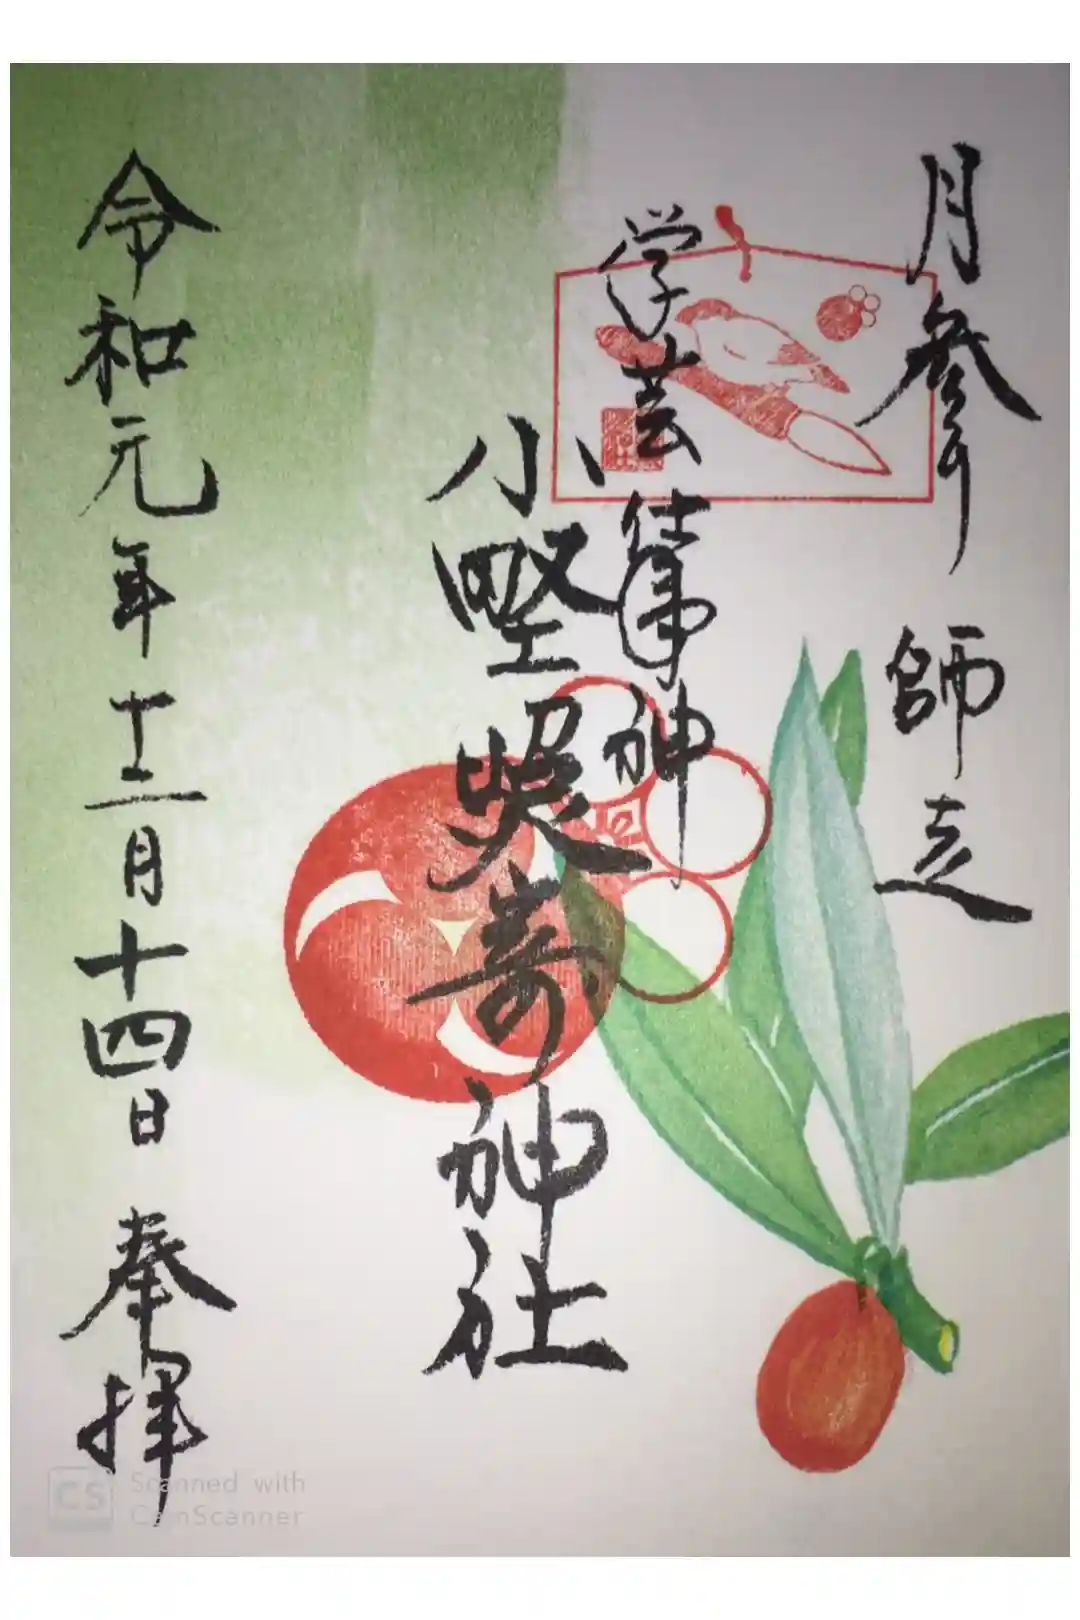 月参り 師走
学芸神
小野照崎神社
令和元年十二月十四日 奉拝
CS
Scanned with
CamScanner